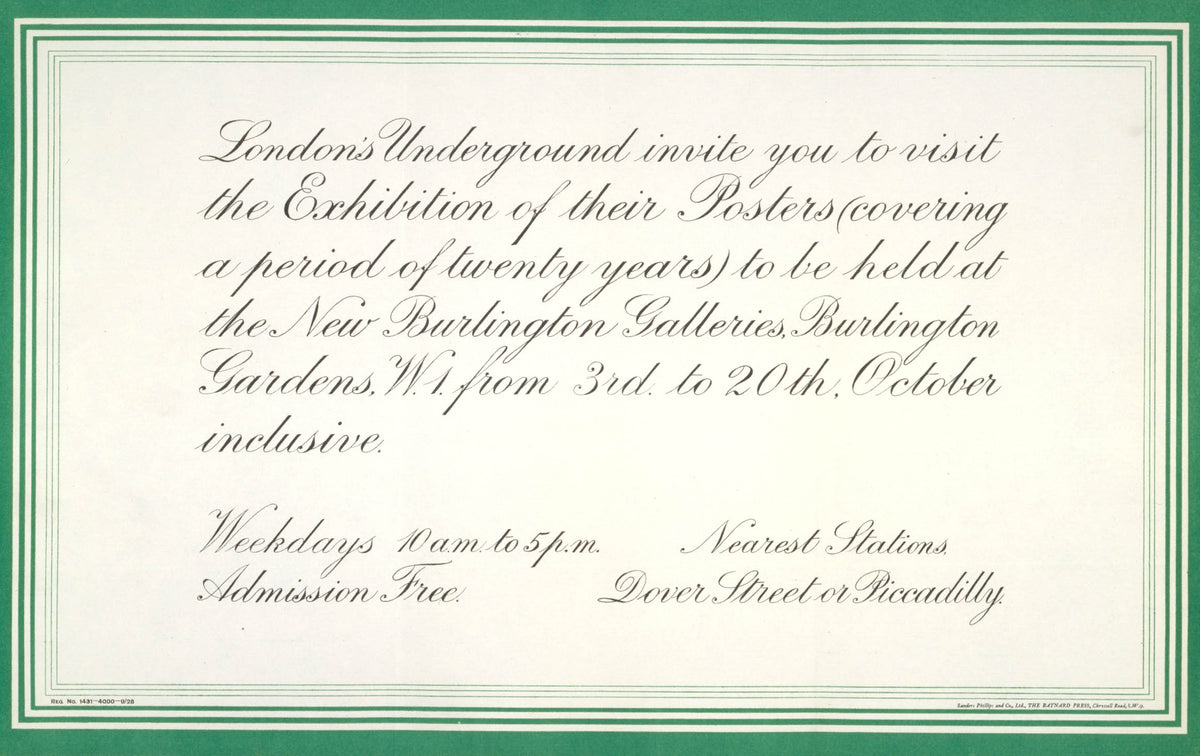 London's Underground invite you to visit
the Exhibition of their Posters (covering
a period of twenty years) to be held at
the New Burlington Galleries, Burlington
Gardens, W.1. from 3rd. to 20th, October
inclusive.
Weekdays 10 a.m. to 5 p.m.
Admission Free.
Nearest Stations,
Dover Street or Piccadilly.
REG. NO. 1431-4000-9/28
Sanders Phillips and Co., Ltd., THE BAYNARD PRESS, Chryssell Road, S.W.9.